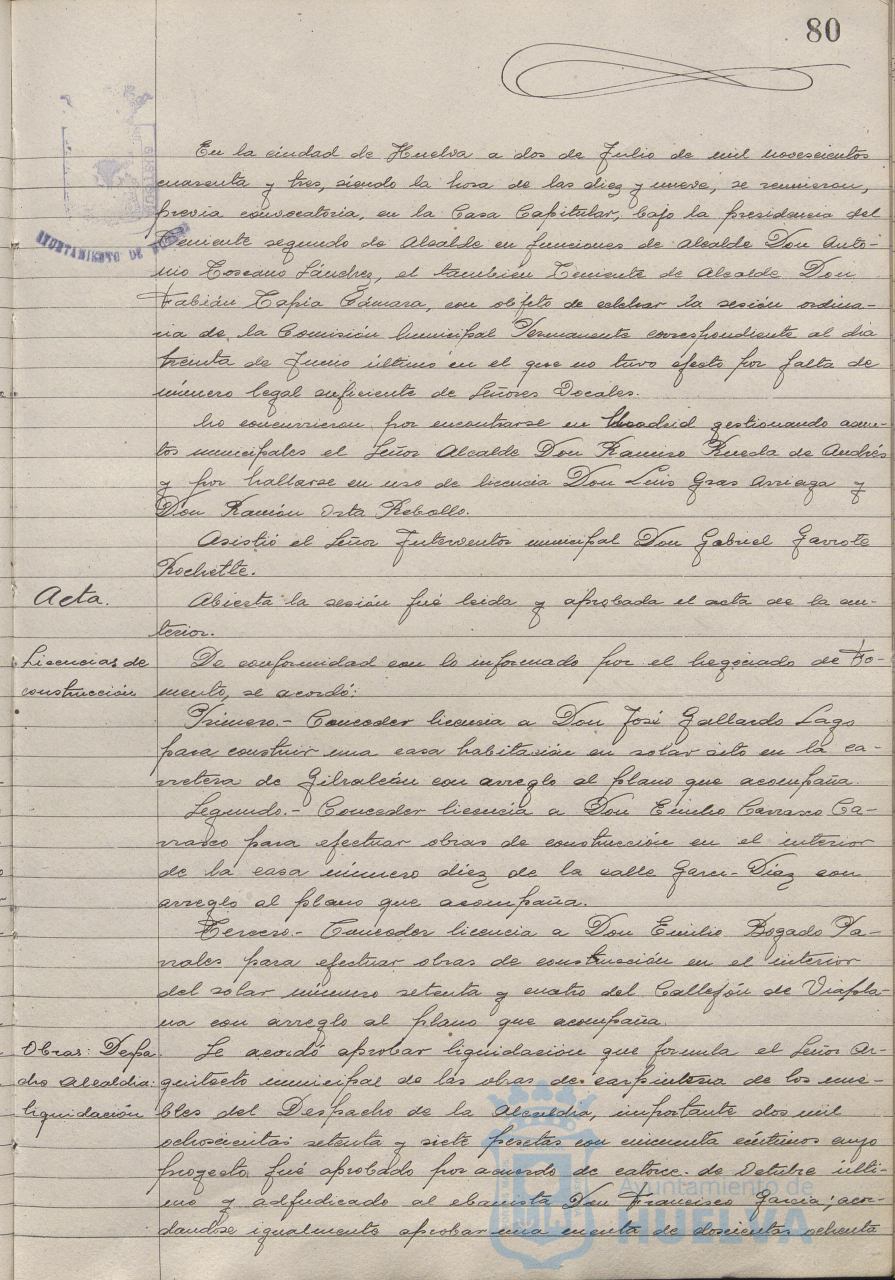 80
En la ciudad de Huelva a dos de Julio de mil novescientos
cuarenta y tres, siendo la hora de las diez y nueve, se reunieron,
previa convocatoria, en la Casa Capitular, bajo la presidencia del
Teniente segundo de Alcalde en funciones de Alcalde Don Anto-
nio Toscano Sánchez, el tambien Teniente de Alcalde Don
Fabián Tapia Cámara, con objeto de celebrar la sesión ordina-
ria de la Comisión Municipal Permanente correspondiente al dia
treinta de Junio último en el que no tuvo efecto por falta de
número legal suficiente de Señores Vocales.
No concurrieron por encontrarse en Madrid gestionando asun-
tos municipales el Señor Alcalde Don Ramiro Rueda de Andrés
y por hallarse en uso de licencia Don Luis Gras Arriaga y
Don Ramón Orta Rebollo.
Asistió el Señor Interventor municipal Don Gabriel Garrote
Rochette.
Acta.
Abierta la sesión fué leida y aprobada el acta de la an-
terior.
Licencias de
construcción
De conformidad con lo informado por el Negociado de Fo-
mento, se acordó:
Primero.- Conceder licencia a Don José Gallardo Lago
para construir una casa habitación en solar sito en la ca-
rretera de Gibraleón con arreglo al plano que acompaña.
Segundo.- Conceder licencia a Don Emilio Carrasco Ca-
rrasco para efectuar obras de construcción en el interior
de la casa número diez de la calle Garci-Díaz con
arreglo al plano que acompaña.
Tercero.- Conceder licencia a Don Emilio Bogado Pa-
rrales para efectuar obras de construcción en el interior
del solar número setenta y cuatro del Callejón de Viapla-
na con arreglo al plano que acompaña.
Obras: Despa
cho Alcaldia:
liquidación
Se acordó aprobar liquidación que formula el Señor Ar-
quitecto municipal de las obras de carpinteria de los mue-
bles del Despacho de la Alcaldia, importante dos mil
ochocientas setenta y siete pesetas con cincuenta céntimos cuyo
proyecto fué aprobado por acuerdo de catorce de Octubre últi-
mo y adjudicado al ebanista Don Francisco Garcia; acor-
dandose igualmente aprobar una cuenta de doscientas ochenta
AYUNTAMIENTO DE HUELVA
Ayuntamiento de
HUELVA